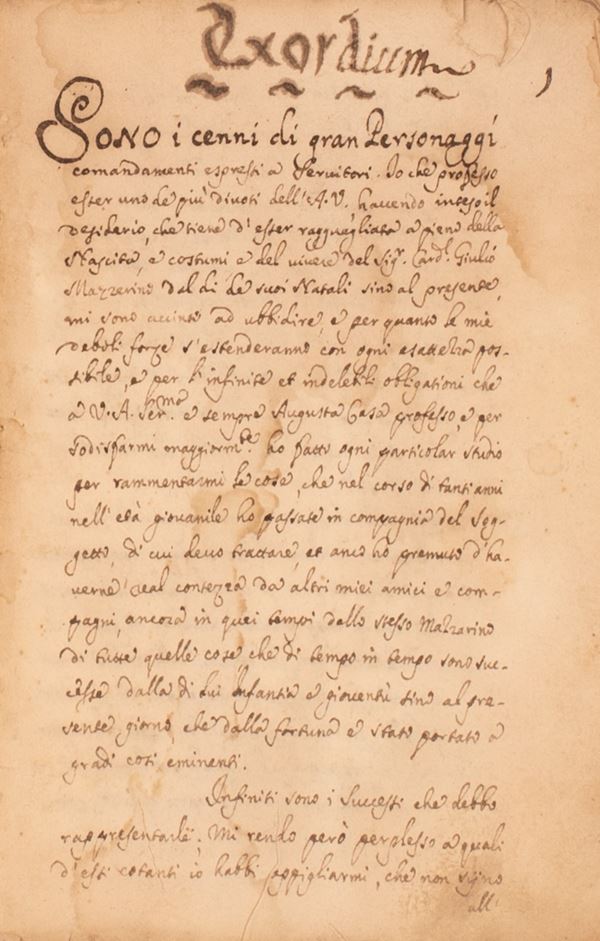 Exordium
Sono i cenni di gran Personaggi
comandamenti espressi a Servitori. Io che professo
esser uno de più divoti dell'A.V. havendo inteso il
desiderio, che tiene d'esser ragguagliata a pieno della
Nascita, e costumi e del vivere del Sigr. Cardl. Giulio
Mazzerino dal dì de suoi Natali sino al presente,
mi sono accinto ad ubbidire, e per quanto le mie
deboli forze s'estenderanno con ogni esattezza pos-
sibile, e per l'infinite et indelebili obligationi che
a V.A. Sermo. e sempre Augusta Casa professo, e per
sodisfarmi maggiormte. ho fatto ogni particolar studio
per rammentarmi le cose, che nel corso di tanti anni
nell'età giovanile ho passate in compagnia del Sog-
getto, di cui devo trattare, et anco ho premuto d'ha-
verne real contezza da altri miei amici e com-
pagni, ancora in quei tempi dello stesso Mazzarino
di tutte quelle cose che di tempo in tempo sono suc-
cesse dalla di lui Infantia e gioventù sino al pre-
sente giorno, che dalla fortuna è stato portato a
gradi così eminenti.
Infiniti sono i Successi che debbo
rappresentarle. Mi rendo però perplesso a quali
d'essi cotanti io habbi appigliarmi, che non siino
all'